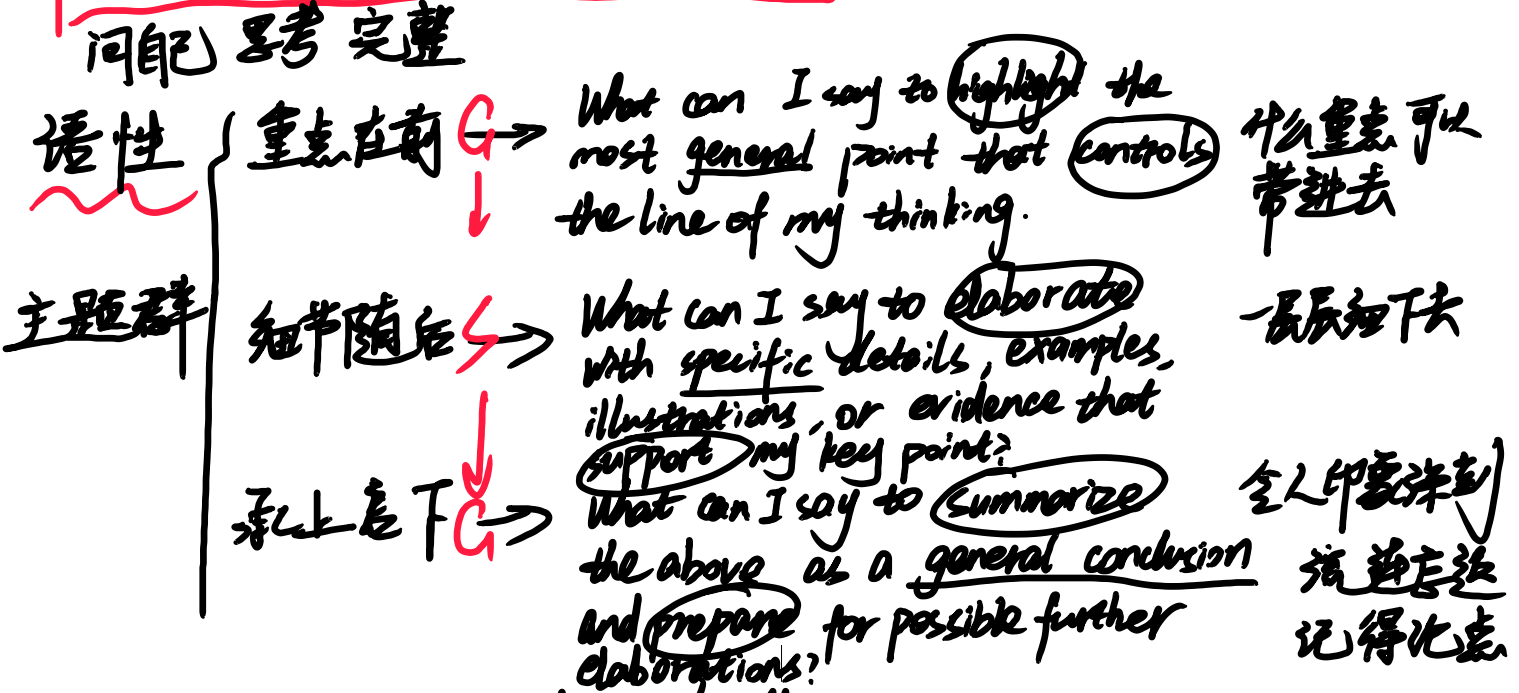 问自己 思考 完整
语性
主题群
重点在前 G →
细节随后 S →
承上启下 G →
What can I say to highlight the
most general point that controls
the line of my thinking.
What can I say to elaborate
with specific details, examples,
illustrations, or evidence that
support my key point?
What can I say to summarize
the above as a general conclusion
and prepare for possible further
elaborations?
什么重点可以
带进去
一层层细下去
令人印象深刻
记得此点